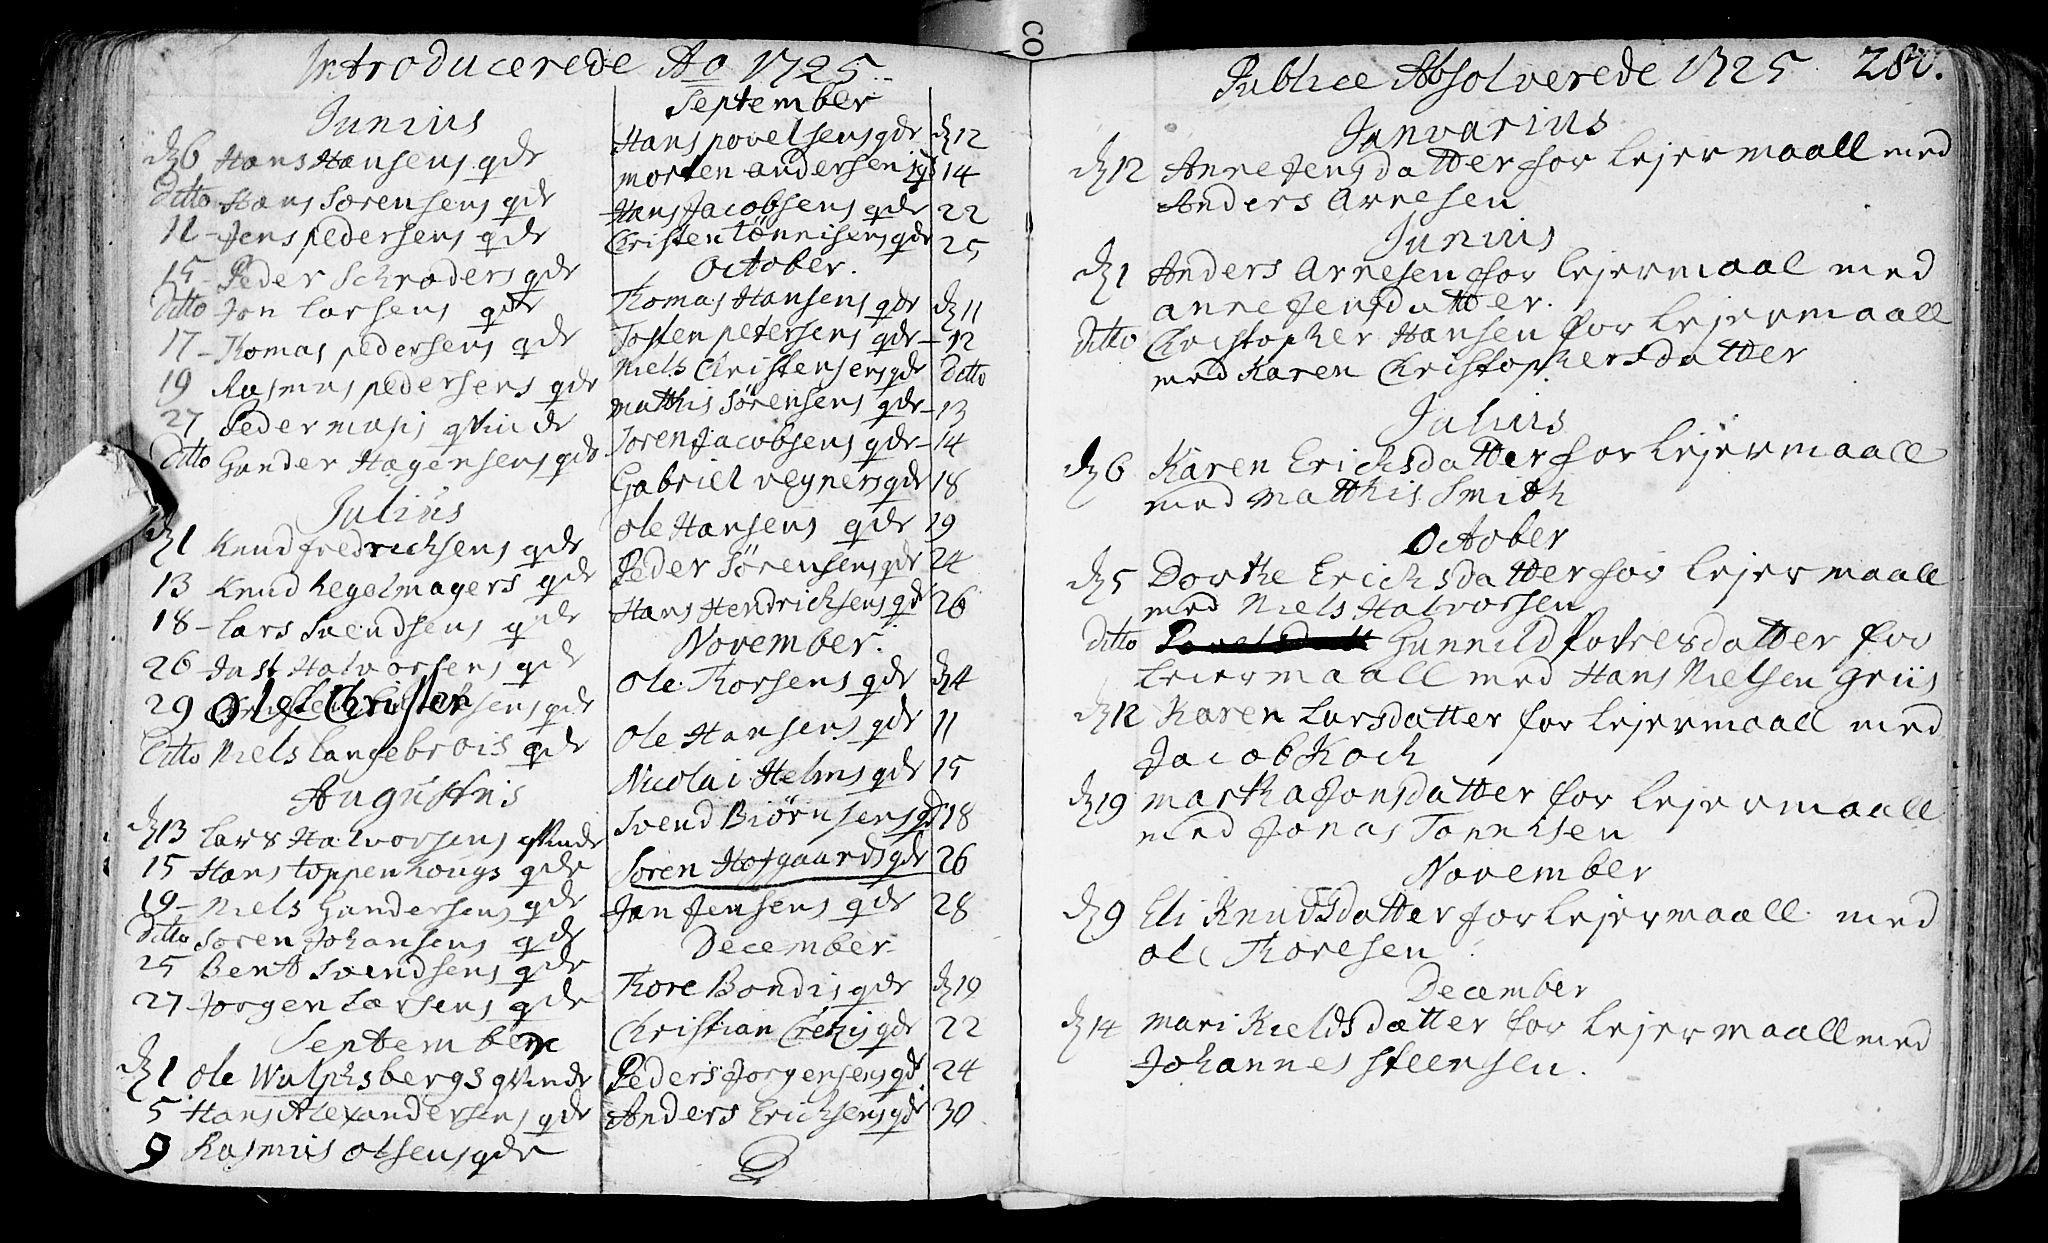 Introducerede Ao 1725
Junius
d 6 Hans Hansens qde
Ditto Hans Sørensens qde
12 - Jens pedersens qde
15 - Peder Schrøders qde
Ditto Jon Larsens qde
17 - Thomas pedersens qde
19 Rasmus pedersens qde
27 Peder Masis qvinde
Ditto Gunder Hagensens qde
Julius
d 1 Knud fredricksens qde
13 Knud Kegelmagers qde
18 - Lars Svendsens qde
26 Just Halvorsens qde
29 Ole Christensens qde
Ditto Niels Langebrois qde
Augustus
d 13 Lars Halvorsens qvinde
15 Hans toppenhougs qde
19 - Niels Gundersens qde
Ditto Soren Johansens qde
25 Bent Svendsens qde
27 Jorgen Larsens qde
September
d 1 Ole Wulphsbergs qvinde
5 Hans Alexandersens qde
9 Rasmus olsens qde
September
Hans povelsens qde d 12
morten andersens qd 14
Hans Jacobsens qde 22
Christen tönnisens qde 25
October.
Thomas Hansens qde d 11
Tosten petersens qde - 12
Niels Christensens qde Ditto
matthis Sörensens qde - 13
Soren Jacobsens qde - 14
Gabriel regners qde 18
Ole Hansens qde 19
Peder Sörensens qde 24
Hans Hendricksens qd 26
November.
Ole Thorsens qde d 4
Ole Hansens qde 11
Nicolai Helms qde 15
Svend Biörnsens qd 18
Soren Hofgaards qde 26
Jan Jensens qde 28
December
Thore Bondis qde d 19
Christian qde 22
Peders Jorgensens qd. 24
Anders Ericksens qde 30
Publice Absolverede 1725 282.
Januarius
d 12 Anne Jensdatter for Lejermaall med
Anders Arnesen
Junius
d 1 Anders Arnesen for Lejermaal med
anne Jensdatter.
Ditto Christopher Hansen for Lejermaall
med Karen Christophersdatter
Julius
d 6 Karen Ericksdatter for Lejermaall
med Matthis Smith
October
d 5 Dorthe Ericksdatter for Lejermaall
med Niels Halvorsen
Ditto Gunnild Povresdatter for
Leiermaall med Hans Nielsen Griis
d 12 Karen Larsdatter for Lejermaall med
Jacob Koch
d 19 martha Jonsdatter for Lejermaall
med Jonas Tonnisen
November
d 9 Eli Knudsdatter for Lejermaall med
ole Thoresen
December
d 14 mari Kieldsdatter for Lejermaall med
Johannes Steensen.